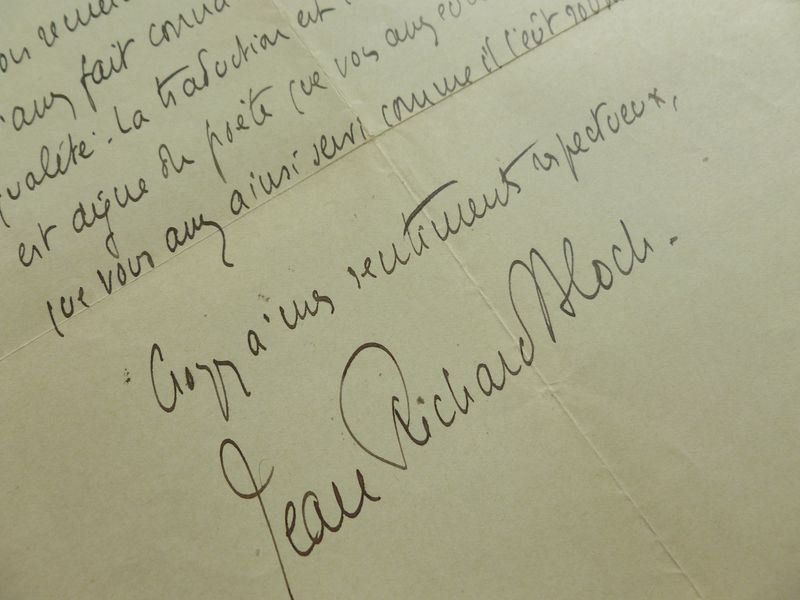 ous remer
m'avez fait conna
qualité. La traduction est
est digne du poète que vous avez
que vous avez ainsi servi comme il l'eût
Croyez à mes sentiments respectueux,
Jean Richard Bloch.